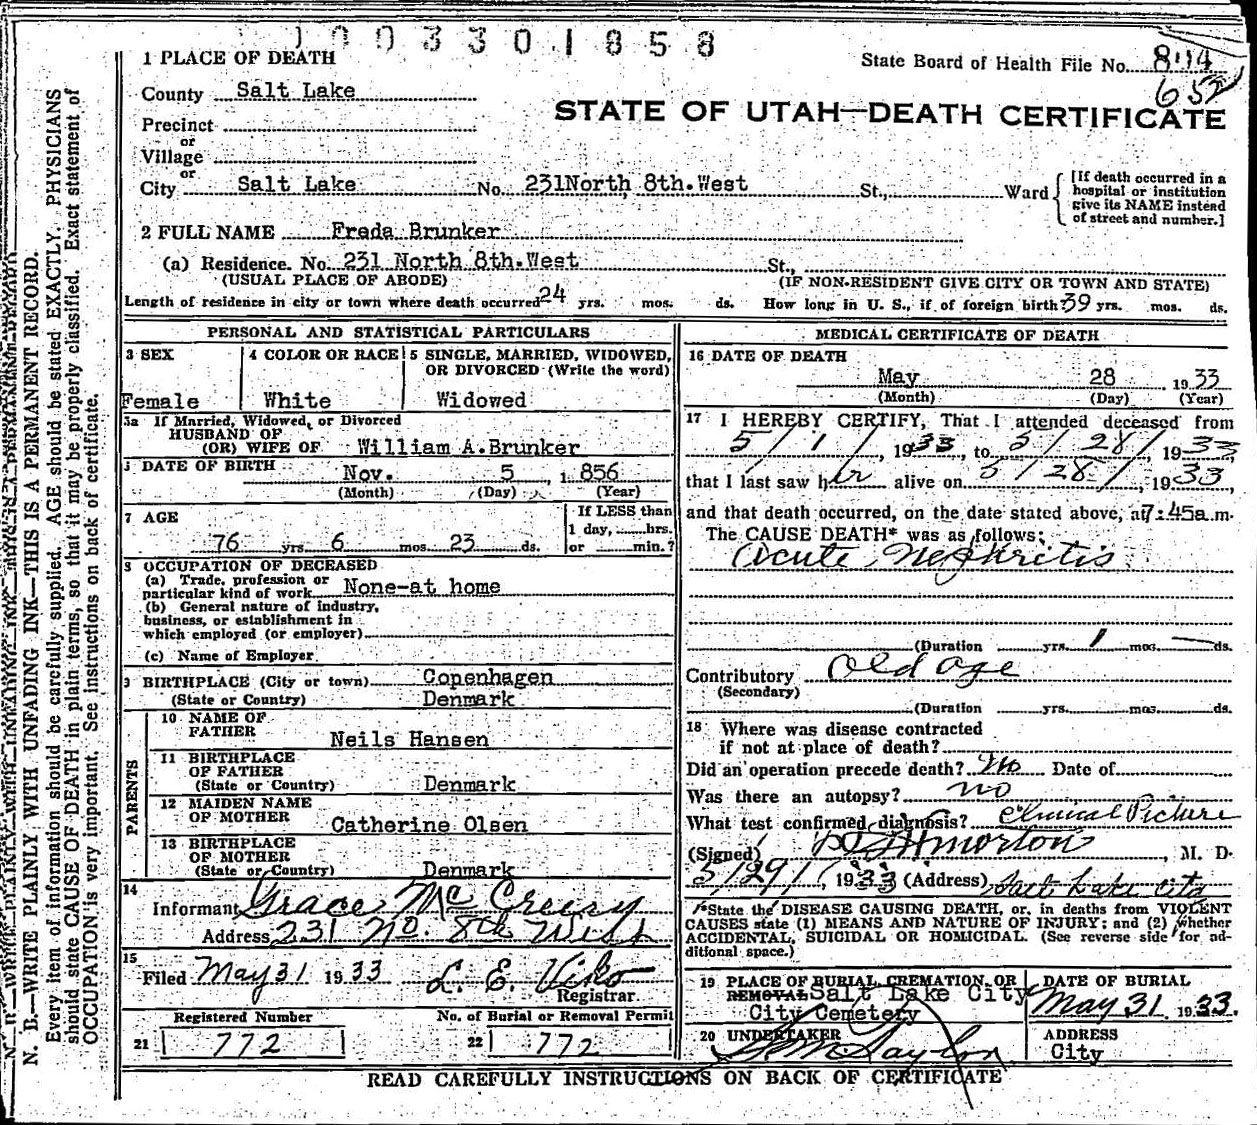 1003301858
1 PLACE OF DEATH
State Board of Health File No. 814
652
County Salt Lake
STATE OF UTAH—DEATH CERTIFICATE
Precinct
or
Village
or
City Salt Lake No. 231North, 8th.West St., Ward
[If death occurred in a hospital or institution give its NAME instead of street and number.]
2 FULL NAME Freda Brunker
(a) Residence. No. 231 North 8th.West St.,
(USUAL PLACE OF ABODE) (IF NON-RESIDENT GIVE CITY OR TOWN AND STATE)
Length of residence in city or town where death occurred 24 yrs. mos. ds. How long in U. S., if of foreign birth? 39 yrs. mos. ds.
PERSONAL AND STATISTICAL PARTICULARS
3 SEX
Female
4 COLOR OR RACE
White
5 SINGLE, MARRIED, WIDOWED, OR DIVORCED (Write the word)
Widowed
5a If Married, Widowed, or Divorced
HUSBAND OF
(OR) WIFE OF William A.Brunker
DATE OF BIRTH Nov. 5 1856
(Month) (Day) (Year)
7 AGE
76 yrs. 6 mos. 23 ds.
If LESS than
1 day, hrs.
or min.?
8 OCCUPATION OF DECEASED
(a) Trade, profession or
particular kind of work None-at home
(b) General nature of industry,
business, or establishment in
which employed (or employer)
(c) Name of Employer
9 BIRTHPLACE (City or town) Copenhagen
(State or Country) Denmark
PARENTS
10 NAME OF
FATHER Neils Hansen
11 BIRTHPLACE
OF FATHER
(State or Country) Denmark
12 MAIDEN NAME
OF MOTHER Catherine Olsen
13 BIRTHPLACE
OF MOTHER
(State or Country) Denmark
14
Informant Grace Mc Creery
Address 231 No. 8th West
15
Filed May 31 1933 L. E. Viko
Registrar
Registered Number
21 772
No. of Burial or Removal Permit
22 772
MEDICAL CERTIFICATE OF DEATH
16 DATE OF DEATH
May 28 1933
(Month) (Day) (Year)
17 I HEREBY CERTIFY, That I attended deceased from
5/1/, 1933, to 5/28/, 1933,
that I last saw her alive on 5/28/, 1933,
and that death occurred, on the date stated above, at 7:45a.m.
The CAUSE DEATH* was as follows:
Acute Nephritis
(Duration yrs. 1 mos. — ds.
Contributory Old age
(Secondary)
(Duration yrs. mos. ds.
18 Where was disease contracted
if not at place of death?
Did an operation precede death? No Date of
Was there an autopsy? no
What test confirmed diagnosis? Clinical Picture
(Signed) , M. D.
5/29/, 1933 (Address) Salt Lake City
*State the DISEASE CAUSING DEATH, or, in deaths from VIOLENT
CAUSES state (1) MEANS AND NATURE OF INJURY; and (2) whether
ACCIDENTAL, SUICIDAL OR HOMICIDAL. (See reverse side for ad-
ditional space.)
19 PLACE OF BURIAL, CREMATION, OR
REMOVAL Salt Lake City
City Cemetery
DATE OF BURIAL
May 31 1933.
20 UNDERTAKER
ADDRESS
City
READ CAREFULLY INSTRUCTIONS ON BACK OF CERTIFICATE
N. B.—WRITE PLAINLY WITH UNFADING INK—THIS IS A PERMANENT RECORD.
Every item of information should be carefully supplied. AGE should be stated EXACTLY. PHYSICIANS
should state CAUSE OF DEATH in plain terms, so that it may be properly classified. Exact statement of
OCCUPATION is very important. See instructions on back of certificate.